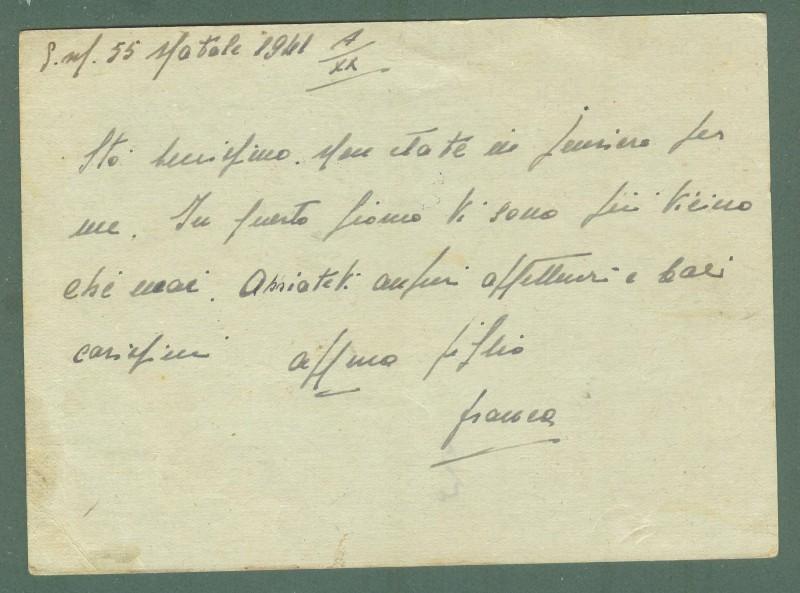 P.M. 55 Natale 1941 A/XX
Sto benissimo. Non state in pensiero per
me. In questo giorno vi sono più vicino
che mai. Abbiatevi auguri affettuosi e baci
carissimi affmo figlio
Franco